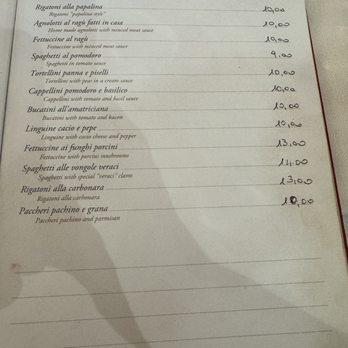 Rigatoni alla papalina 10,00
Rigatoni "papalina style"
Agnolotti al ragù fatti in casa 10,00
Home made agnolotti with minced meat sauce
Fettuccine al ragù 10,00
Fettuccine with minced meat sauce
Spaghetti al pomodoro 9,00
Spaghetti in tomato sauce
Tortellini panna e piselli 10,00
Tortellini with peas in a cream sauce
Cappellini pomodoro e basilico 10,00
Cappellini with tomato and basil sauce
Bucatini all'amatriciana 10,00
Bucatini with tomato and bacon
Linguine cacio e pepe 10,00
Linguine with cacio cheese and pepper
Fettuccine ai funghi porcini 13,00
Fettuccine with porcini mushrooms
Spaghetti alle vongole veraci 14,00
Spaghetti with special "veraci" clams
Rigatoni alla carbonara 13,00
Rigatoni alla carbonara
Paccheri pachino e grana 10,00
Paccheri pachino and parmisan